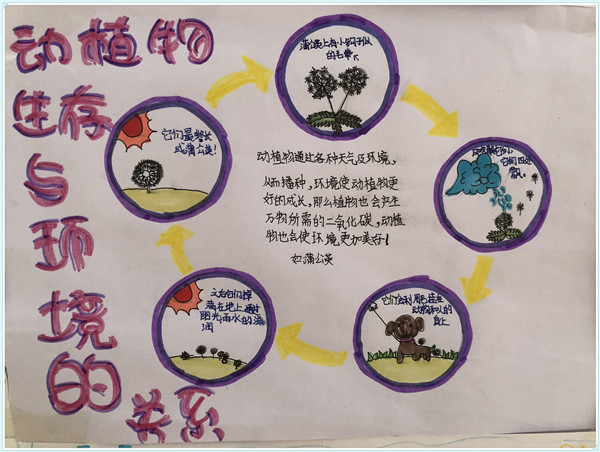 动植物
生存
与
环
境
的
关系
蒲公英上有小钩子似
的毛
动植物通过各种天气及环境,
从而播种,环境使动植物更
好的成长,那么植物也会产生
万物所需的二氧化碳,动植
物也会使环境更加美好!
如蒲公英
它们四处
它们会利用毛挂在
动物和人的
身上
它们掉
落在地上通过
阳光雨水的滋
润
它们最终长
成蒲公英!